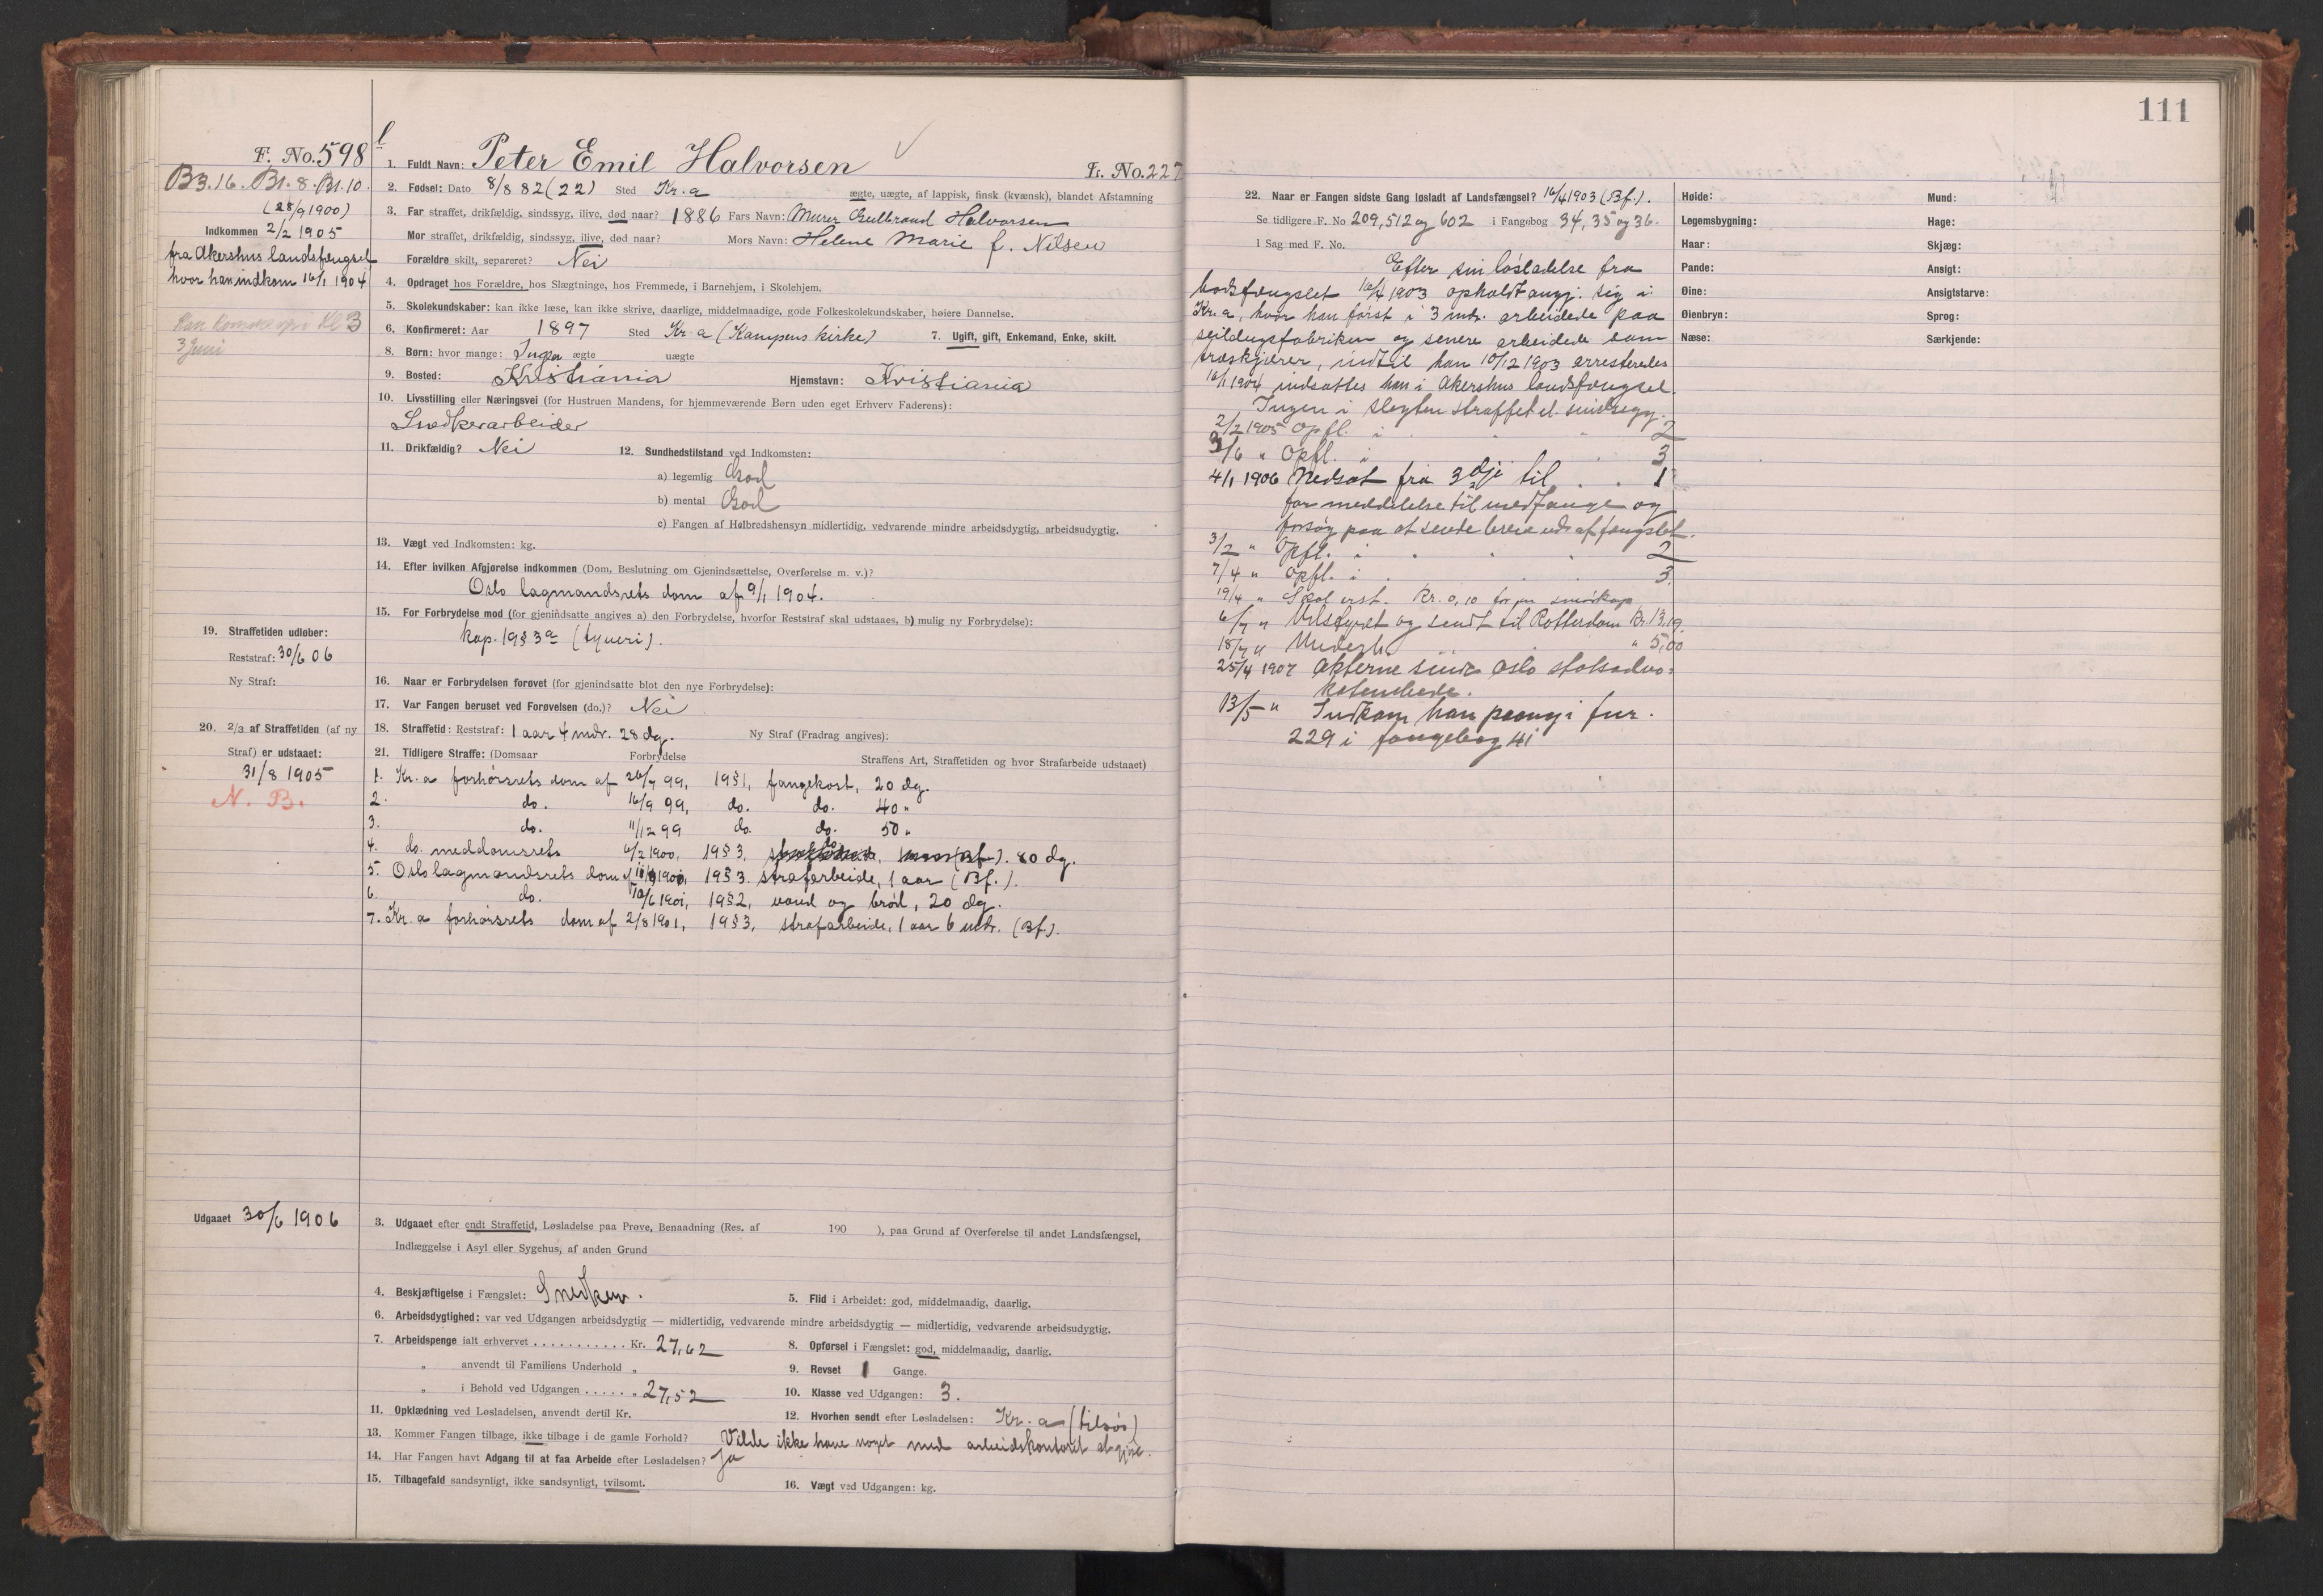 111
F. No. 598
B3.16. B1.8. B1.10.
(28/9 1900)
Indkommen 2/2 1905
fra Akershus landsfængsel
hvor han indkom 16/1 1904
Kan komme op i Kl 3
3 Juni
1. Fuldt Navn: Peter Emil Halvorsen
L. No. 227
2. Fødsel: Dato 8/8 82 (22) Sted Kr.a ægte, uægte, af lappisk, finsk (kvænsk), blandet Afstamning
3. Far straffet, drikfældig, sindssyg, ilive, død naar? 1886 Fars Navn: Murer Gulbrand Halvorsen
Mor straffet, drikfældig, sindssyg, ilive, død naar? Mors Navn: Helene Marie f. Nilsen
Forældre skilt, separeret? Nei
4. Opdraget hos Forældre, hos Slægtninge, hos Fremmede, i Barnehjem, i Skolehjem.
5. Skolekundskaber: kan ikke læse, kan ikke skrive, daarlige, middelmaadige, gode Folkeskolekundskaber, høiere Dannelse.
6. Konfirmeret: Aar 1897 Sted Kr.a (Kampens kirke) 7. Ugift, gift, Enkemand, Enke, skilt.
8. Børn: hvor mange: Ingen ægte uægte
9. Bosted: Kristiania Hjemstavn: Kristiania
10. Livsstilling eller Næringsvei (for Hustruen Mandens, for hjemmeværende Børn uden eget Erhverv Faderens):
Snedkerarbeider
11. Drikfældig? Nei 12. Sundhedstilstand ved Indkomsten:
a) legemlig God
b) mental God
c) Fangen af Helbredshensyn midlertidig, vedvarende mindre arbeidsdygtig, arbeidsudygtig.
13. Vægt ved Indkomsten: kg.
14. Efter hvilken Afgjørelse indkommen (Dom, Beslutning om Gjenindsættelse, Overførelse m. v.)?
Oslo lagmandsrets dom af 9/1 1904.
15. For Forbrydelse mod (for gjenindsatte angives a) den Forbrydelse, hvorfor Reststraf skal udstaaes, b) mulig ny Forbrydelse):
kap. 19 § 3 a (tyveri).
19. Straffetiden udløber:
Reststraf: 30/6 06
Ny Straf:
16. Naar er Forbrydelsen forøvet (for gjenindsatte blot den nye Forbrydelse):
17. Var Fangen beruset ved Forøvelsen (do.)? Nei
20. 2/3 af Straffetiden (af ny
Straf) er udstaaet:
31/8 1905
N. B.
18. Straffetid: Reststraf: 1 aar 4 mdr. 28 dg. Ny Straf (Fradrag angives):
21. Tidligere Straffe: (Domsaar Forbrydelse Straffens Art, Straffetiden og hvor Strafarbeide udstaaet)
1. Kr.a forhørsrets dom af 26/7 99, 19 § 1, fangekost, 20 dg.
2. do. 16/9 99, do. do. 40 "
3. do. 11/12 99 do. do. 50 "
4. do. meddomsrets 6/2 1900, 19 § 3, do. (Bf.). 80 dg.
5. Oslo lagmandsrets dom af 1900, 19 § 3. strafarbeide, 1 aar (Bf.).
6. do. 1901, 19 § 2, vand og brød, 20 dg.
7. Kr.a forhørsrets dom af 2/8 1901, 19 § 3, strafarbeide, 1 aar 6 mdr. (Bf.).
Udgaaet 30/6 1906
3. Udgaaet efter endt Straffetid, Løsladelse paa Prøve, Benaadning (Res. af 190 ), paa Grund af Overførelse til andet Landsfængsel,
Indlæggelse i Asyl eller Sygehus, af anden Grund
4. Beskjæftigelse i Fængslet: Snedker. 5. Flid i Arbeidet: god, middelmaadig, daarlig.
6. Arbeidsdygtighed: var ved Udgangen arbeidsdygtig — midlertidig, vedvarende mindre arbeidsdygtig — midlertidig, vedvarende arbeidsudygtig.
7. Arbeidspenge ialt erhvervet . . . . . . . . . . . Kr. 27,62 8. Opførsel i Fængslet: god, middelmaadig, daarlig.
" anvendt til Familiens Underhold " 9. Revset 1 Gange.
" i Behold ved Udgangen . . . . . . " 27,52 10. Klasse ved Udgangen: 3.
11. Opklædning ved Løsladelsen, anvendt dertil Kr. 12. Hvorhen sendt efter Løsladelsen: Kr.a (tilsøs)
13. Kommer Fangen tilbage, ikke tilbage i de gamle Forhold? Vilde ikke have noget med arbeidskontoret at gjøre.
14. Har Fangen havt Adgang til at faa Arbeide efter Løsladelsen? Ja
15. Tilbagefald sandsynligt, ikke sandsynligt, tvilsomt. 16. Vægt ved Udgangen: kg.
22. Naar er Fangen sidste Gang løsladt af Landsfængsel? 16/4 1903 (Bf.).
Se tidligere F. No 209, 512 og 602 i Fangebog 34, 35 og 36.
I Sag med F. No.
Efter sin løsladelse fra
bodsfængslet 16/4 1903 opholdt angj. sig i
Kr.a, hvor han først i 3 mdr. arbeidede paa
seildugsfabriken og senere arbeidede som
træskjærer, indtil han 10/12 1903 arresteredes
16/1 1904 indsattes han i Akershus landsfængsel.
Ingen i slegten straffet el. sindssyg.
2/2 1905 Opfl. i . . . 2
3/6 " Opfl. i . . 3
4/1 1906 Nedsat fra 3dje til . . 1
for meddelelse til medfange og
forsøg paa at sende breve ud af fængslet.
3/2 " Opfl. i . . . 2
7/4 " Opfl. i . . 3.
19/4 " Skal erst. Kr. 0,10 for en smørkop
6/7 " Udstyret og sendt til Rotterdam Kr. 13.19.
18/7 " " 5,00
25/4 1907 Akterne sendt Oslo statsadvo=
katembede.
13/5 " Indkom han paany i fnr.
229 i fangebog 41
Høide:
Legemsbygning:
Haar:
Pande:
Øine:
Øienbryn:
Næse:
Mund:
Hage:
Skjæg:
Ansigt:
Ansigtstarve:
Sprog:
Særkjende: